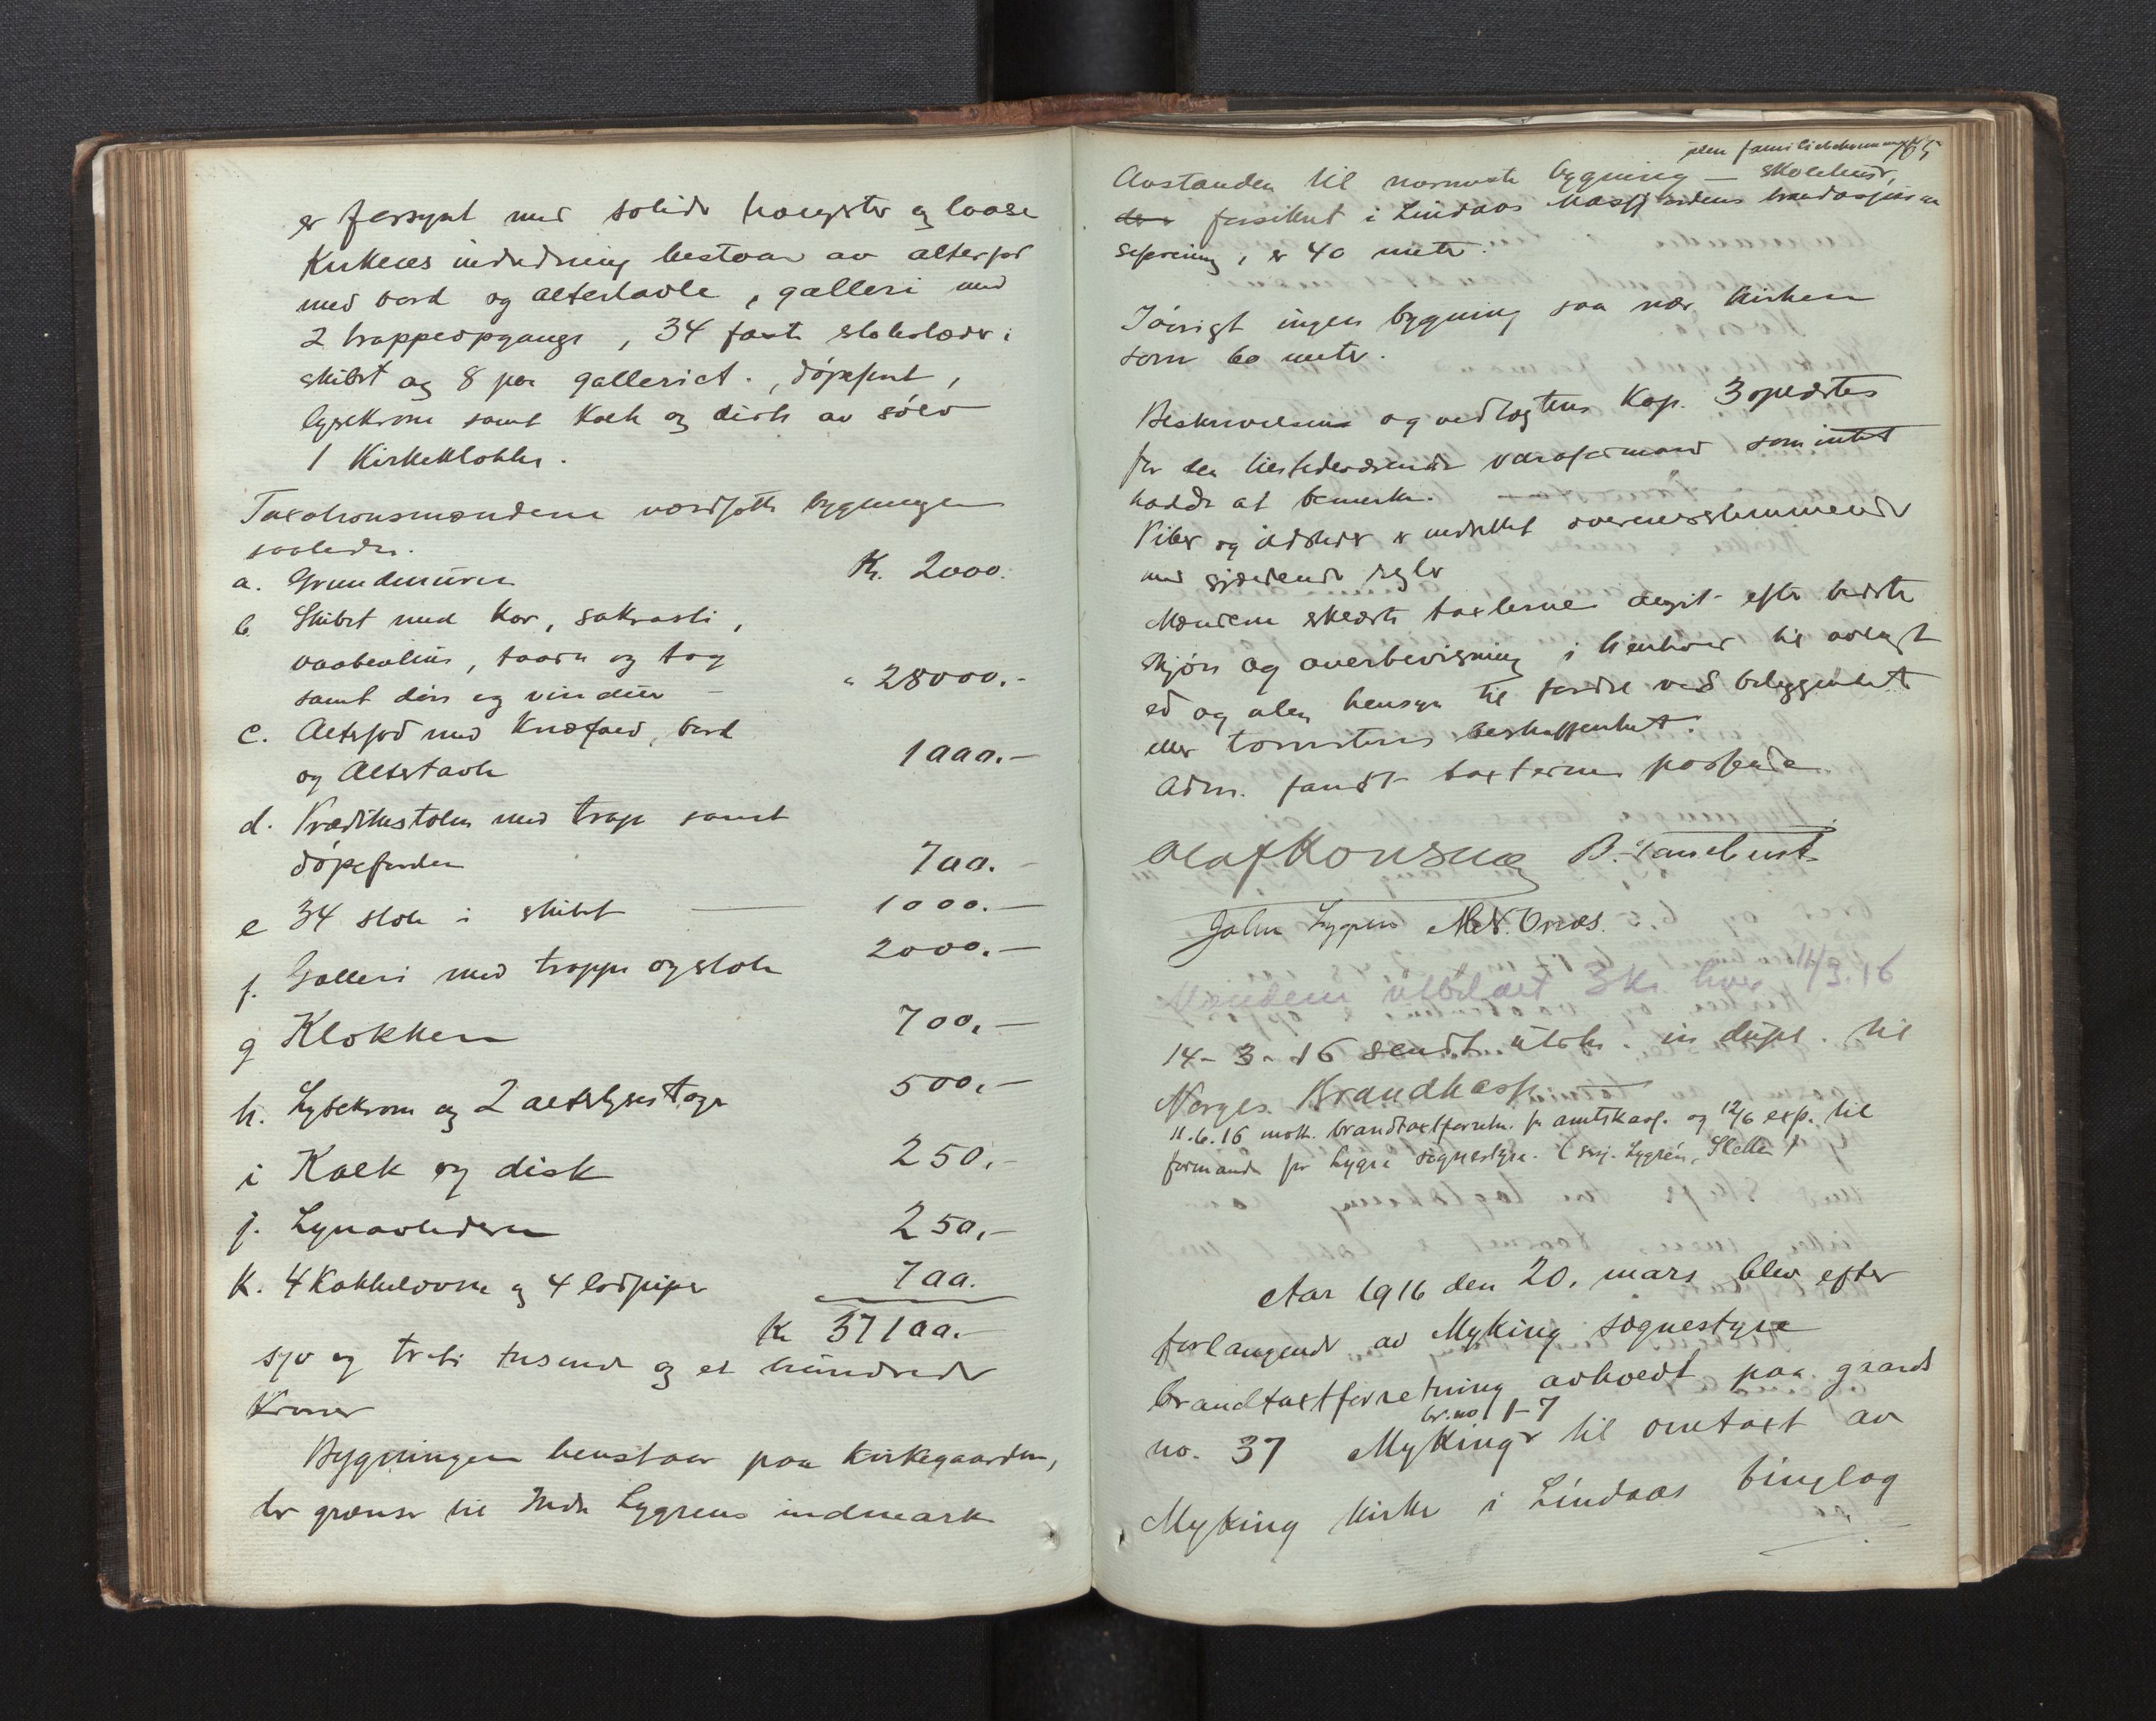 er forsynt med solide hængsler og laase
Kirkens indredning bestaar av alterfod
med bord og altertavle, galleri med
2 trappeopgange, 34 faste stolestader i
skibet og 8 paa galleriet, døpefont,
lysekrone samt Kalk og disk av sølv
1 Kirkeklokke.
Taxationsmændene værdsatte bygningen
saaledes.
a. Grundmuren Kr. 2000.
b Skibet med Kor, sakrasti,
vaabenhus, taarn og tag
samt dør og vinduer - " 28000.-
c. Alterfod med Knæfald, bord
og Altertavle 1000.-
d. Prædikestolen med trap samt
døpefonden 700.-
e 34 stole i skibet 1000.-
f. Galleri med trappe og stole 2000.-
g Klokken 700.-
h. Lysekrone og 2 alterlysestager 500.-
i Kalk og disk 250.-
j. Lynavlederen 250.-
k. 4 Kakkelovne og 4 lodpiper 700.
Kr 37100.-
syv og treti tusende og et hundrede
Kroner
Bygningen henstaar paa kirkegaarden,
der grænser til Indre Lygrens indmark
uten familiebekvemmelighet
Avstanden til nærmeste bygning – skolehus,
der forsikret i Lindaas Masfjordens brandassuranse
seforening, er 40 meter.
Iøvrigt ingen bygning saa nær kirken
som 60 meter.
Beskrivelsen og vedtægtens Kap. 3 oplæstes
for den tilstedeværende varaformand som intet
hadde at bemerke.
Piber og ildsteder er indrettet overensstemmende
med gjældende regler
Mændene erklærte taxterne avgit efter bedste
skjøn og overbevisning i henhold til avlagt
ed og uten hensyn til fordel ved beliggenhet
eller tomtens beskaffenhet.
Adm. fandt taxterne passende
Olaf Konsmo B. Tanebust
John Lygren M. N. Onæs.
Mændene utbetalt 3 Kr. hver 14/3.16
14-3-16 sendt utskr. in dupl. til
Norges Brandkasse
11.6.16 mott. brandtaxtforretn. fr amtskass. og 12/6 exp. til
formand for Lygre sognestyre. (Lygren, Sletten)
Aar 1916 den 20. mars blev efter
forlangende av Myking sognestyre
brandtaxtforretning avholdt paa gaards
br.no 1-7
no. 37 Myking til omtaxt av
Myking kirke i Lindaas tinglag